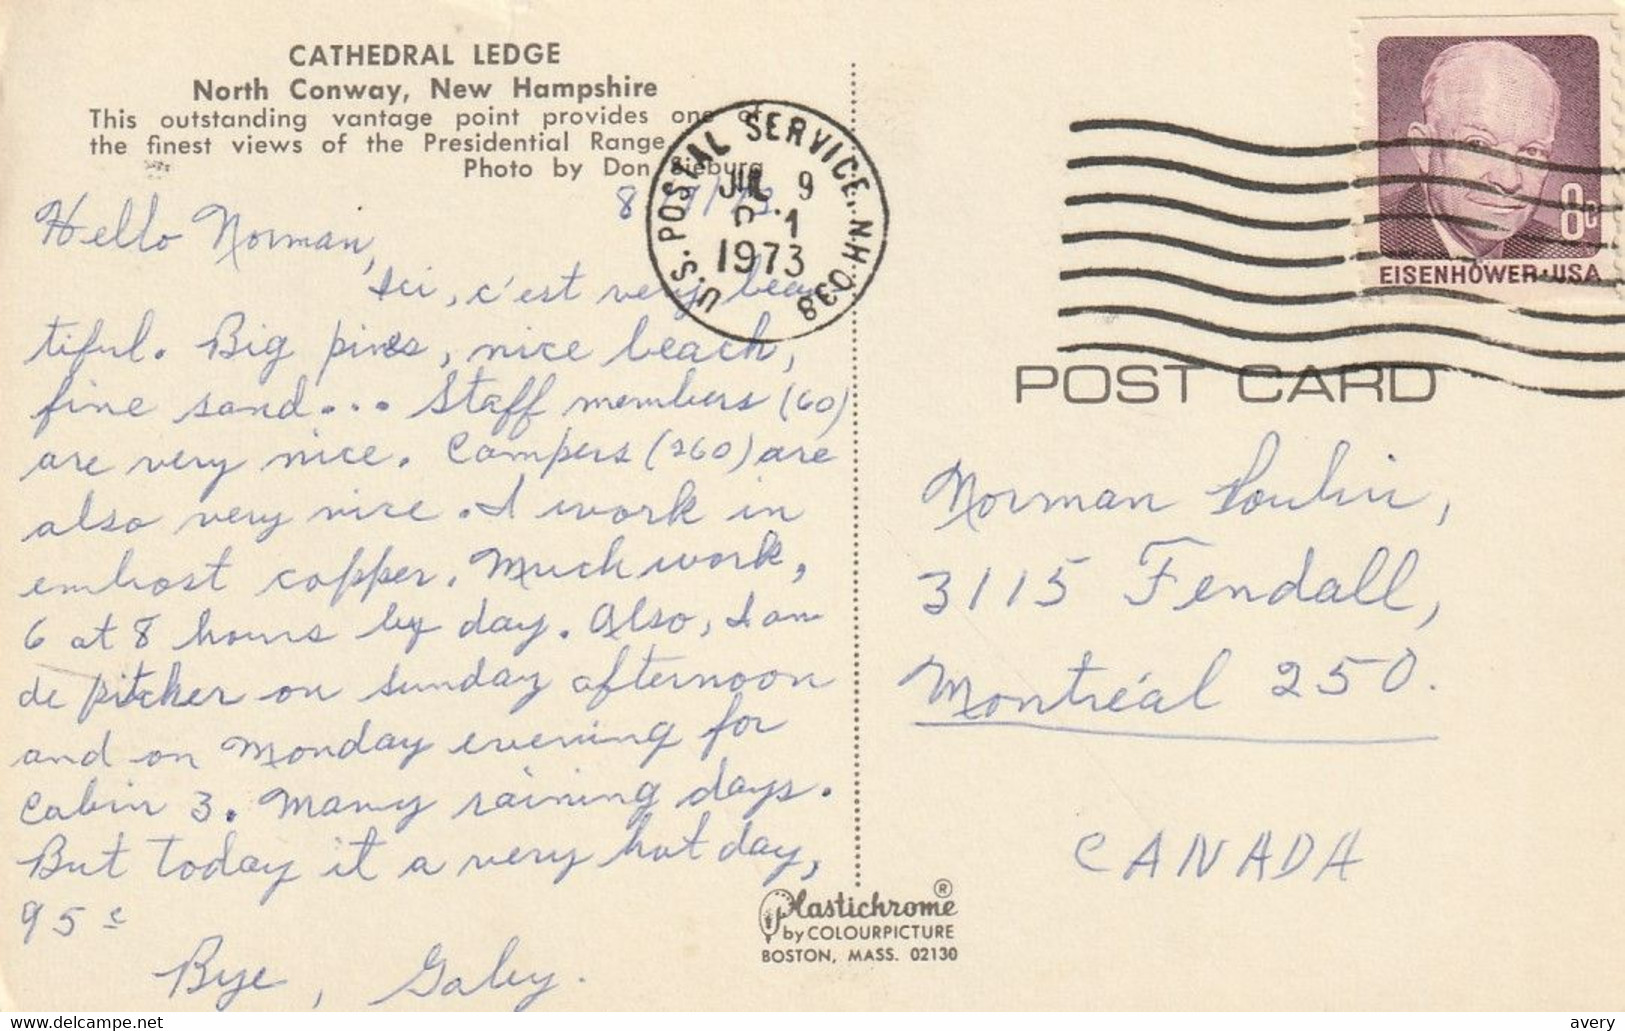 CATHEDRAL LEDGE
North Conway, New Hampshire
This outstanding vantage point provides one of
the finest views of the Presidential Range
Photo by Don Sieburg
8/7/73.
Hello Norman,
Ici, c'est very beau-
tiful. Big pines, nice beach,
fine sand... Staff members (60)
are very nice. Campers (260) are
also very nice. I work in
embost copper. Much work,
6 at 8 hours by day. Also, I am
de pitcher on sunday afternoon
and on Monday evening for
Cabin 3. Many raining days.
But today it a very hot day,
95°
Bye, Gaby.
U.S. POSTAL SERVICE, NH 038
JUL 9
1973
8c
EISENHOWER·USA
POST CARD
Norman Poulin,
3115 Fendall,
Montréal 250.
CANADA
Plastichrome ®
by COLOURPICTURE
BOSTON, MASS. 02130
delcampe.net
avery